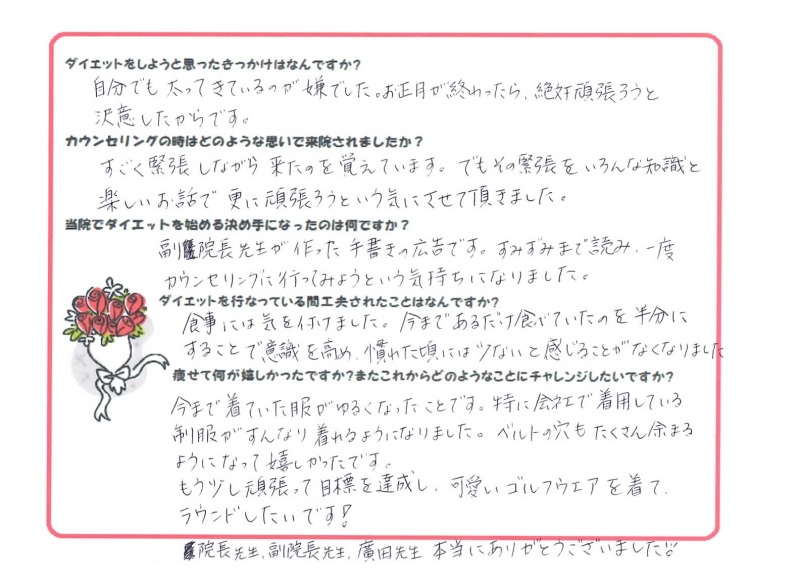 ダイエットをしようと思ったきっかけはなんですか?
自分でも太ってきているのが嫌でした。お正月が終わったら、絶対頑張ろうと
決意したからです。
カウンセリングの時はどのような思いで来院されましたか?
すごく緊張しながら来たのを覚えています。でもその緊張をいろんな知識と
楽しいお話で更に頑張ろうという気にさせて頂きました。
当院でダイエットを始める決め手になったのは何ですか?
副院長先生が作った手書きの広告です。すみずみまで読み、一度
カウンセリングに行ってみようという気持ちになりました。
ダイエットを行なっている間工夫されたことはなんですか?
食事には気を付けました。今まであるだけ食べていたのを半分に
することで意識を高め、慣れた頃には少ないと感じることがなくなりました
痩せて何が嬉しかったですか?またこれからどのようなことにチャレンジしたいですか?
今まで着ていた服がゆるくなったことです。特に会社で着用している
制服がすんなり着れるようになりました。ベルトの穴もたくさん余まる
ようになって嬉しかったです。
もう少し頑張って目標を達成し、可愛いゴルフウエアを着て、
ラウンドしたいです!
院長先生、副院長先生、廣田先生 本当にありがとうございました!!